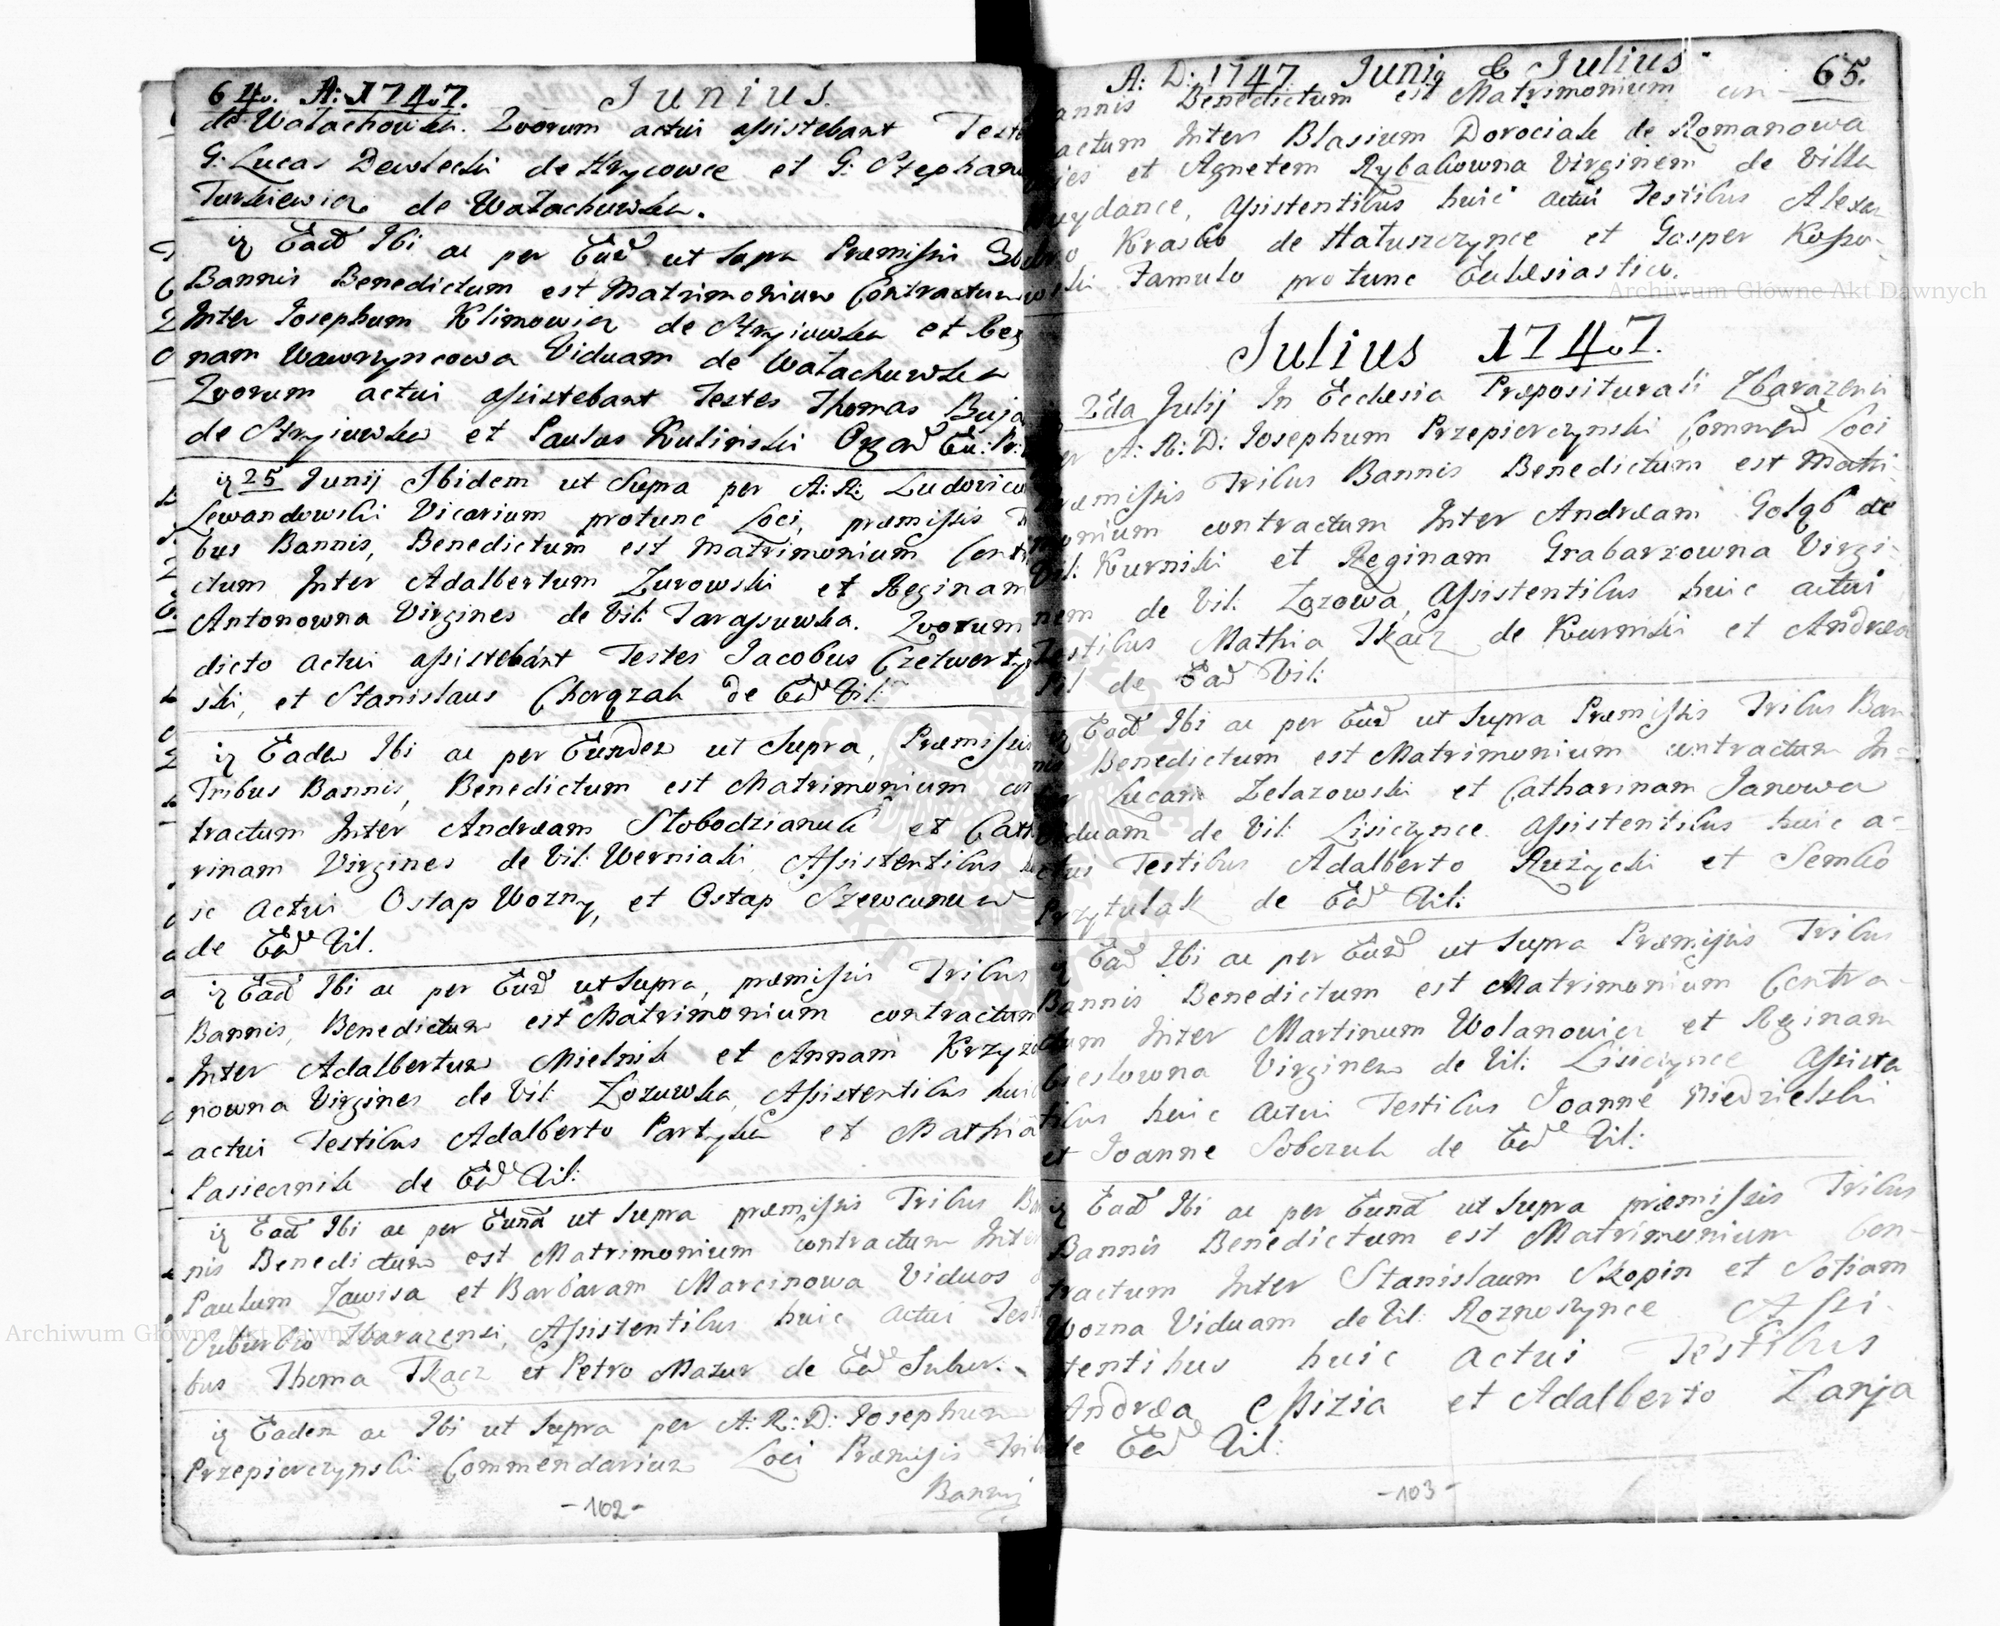 64. A: 1747. Junius.
de Wałachowka. Qvorum actui assistebant Testes
G: Lucas Dewlecki de Hrycowce et G: Stephan
Turkiewicz de Wałachuwka.
Eadē Ibi ac per Eūd ut Supra Præmissis
Bannis Benedictum est Matrimonium Contractum
Inter Josephum Klimowicz de Stryiowka et Regi
nam Wawrzyncowa Viduam de Wałachuwka
Qvorum actui assistebant Testes Thomas Buja
de Stryiuwka et Paulus Kulinski Organ
25 Junij Ibidem ut Supra per A: R: Ludovicum
Lewandowski Vicarium protunc Loci, præmissis Tri
bus Bannis, Benedictum est Matrimonium Contra
ctum Inter Adalbertum Zurowski et Reginam
Antonowna Virgines de Vil: Tarassuwka. Qvorum
dicto actui assistebant Testes Jacobus Czetwertyn
ski, et Stanislaus Chorązak de Eād Vil:
Eadem Ibi ac per Eundem ut Supra, Præmissis
Tribus Bannis, Benedictum est Matrimonium con
tractum Inter Andræam Słobodzianuk et Catha
rinam Virgines de Vil: Werniaki, Assistentibus hu
ic Actui Ostap Wozny, et Ostap Szewcunum
de Eād Vil.
Eād Ibi ac per Eūd ut Supra, præmissis Tribus
Bannis, Benedictum est Matrimonium contractum
Inter Adalbertum Mielnik et Annam Krzyża
nowna Virgines de Vil: Zozuwka, Assistentibus huic
actui Testibus Adalberto Partyka et Mathia
Pasiecznik de Eād Vil:
Eād Ibi ac per Eund ut Supra præmissis Tribus Ban
nis Benedictum est Matrimonium contractum Inter
Paulum Zawisa et Barbaram Marcinowa Viduos
Suburbio Zbarazensi, Assistentibus huic actui Testi
bus Thoma Tkacz et Petro Mazur de Eād Subur.
Eadem ac Ibi ut Supra per A: R: D: Josephum
Przepierczynski Commendarium Loci Præmissis Trib
Bannis
-102-
A: D: 1747 Juniq & Julius 65.
annis Benedictum est Matrimonium con-
actum Inter Blasium Dorociak de Romanowa
et Agnetem Rybakowna Virginem de Villa
Assistentibus huic actui Testibus Alexan
Krasko de Hałuszczynce et Gasper Kosso-
ski Famulo protunc Ecclesiastico.
Julius 1747.
2da Julij In Ecclesia Præpositurali Zbarazensi
per A: R: D: Josephum Przepierczynski Commend Loci
ræmissis Tribus Bannis Benedictum est Matri-
monium contractum Inter Andræam Gołąb de
Vil: Kurniki et Reginam Grabarzowna Virgi-
nem de Vil: Zozowa, Assistentibus huic actui
Testibus Mathia Tkacz de Kurniki et Andræa
de Eād Vil:
Eād Ibi ac per Eūd ut Supra Præmissis Tribus Ban-
nis Benedictum est Matrimonium contractum In-
ter Lucam Zelazowski et Catharinam Janowa
Viduam de Vil: Lisiczynce. Assistentibus huic a-
ctui Testibus Adalberto Rużycki et Semko
Przytulak de Eād Vil:
Eād Ibi ac per Eūnd ut Supra Præmissis Tribus
Bannis Benedictum est Matrimonium Contra-
ctum Inter Martinum Wolanowicz et Reginam
Virginem de Vil: Lisiczynce Assisten
tibus huic actui Testibus Joanne Niedzielski
et Joanne Sobczuk de Eād Vil:
Eād Ibi ac per Eund ut Supra præmissis Tribus
Bannis Benedictum est Matrimonium Con-
tractum Inter Stanislaum Skopin et Sofiam
Wozna Viduam de Vil: Roznoszynce Assi-
stentibus huic actui Testibus
Andræa et Adalberto Zanja
de Eād Vil:
-103-
Archiwum Główne Akt Dawnych
Archiwum Główne Akt Dawnych